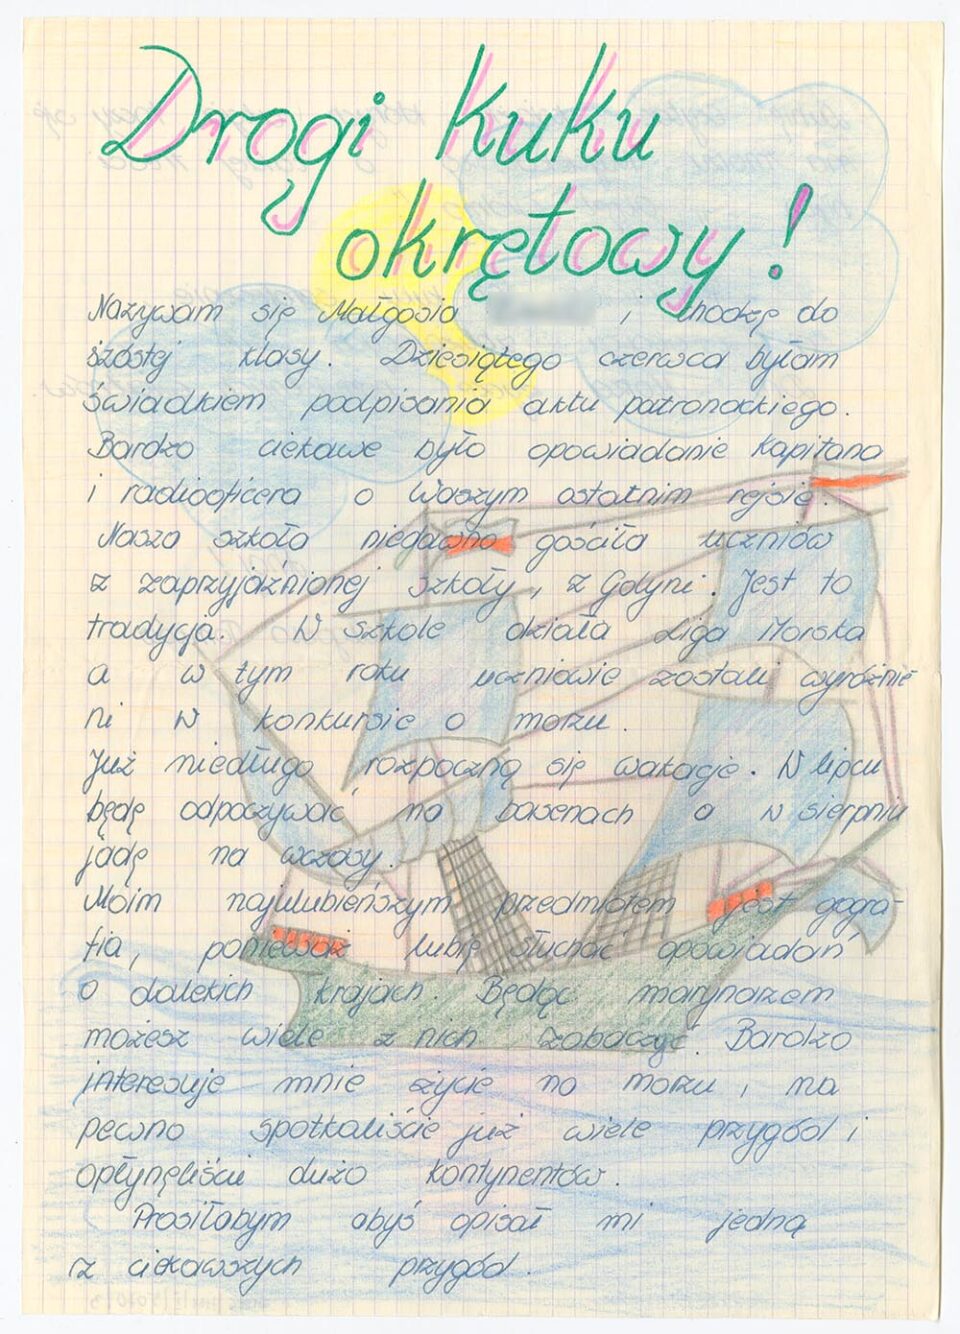 Drogi kuku
okrętowy!
Nazywam się Małgosia i chodzę do
szóstej klasy. Dziesiątego czerwca byłam
świadkiem podpisania aktu patronackiego.
Bardzo ciekawe było opowiadanie Kapitana
i radiooficera o Waszym ostatnim rejsie.
Nasza szkoła niedawno gościła uczniów
z zaprzyjaźnionej szkoły, z Gdyni. Jest to
tradycja. W szkole działa Liga Morska
a w tym roku uczniowie zostali wyróżnie-
ni w konkursie o morzu.
Już niedługo rozpoczną się wakacje. W lipcu
będę odpoczywać na basenach a w sierpniu
jadę na wczasy.
Moim najulubieńszym przedmiotem jest gogra-
fia, ponieważ lubię słuchać opowiadań
o dalekich krajach. Będąc marynarzem
możesz wiele z nich zobaczyć. Bardzo
interesuje mnie życie na morzu, na
pewno spotkaliście już wiele przygód i
opłynęliście dużo kontynentów.
Prosiłabym abyś opisał mi jedną
z ciekawszych przygód.